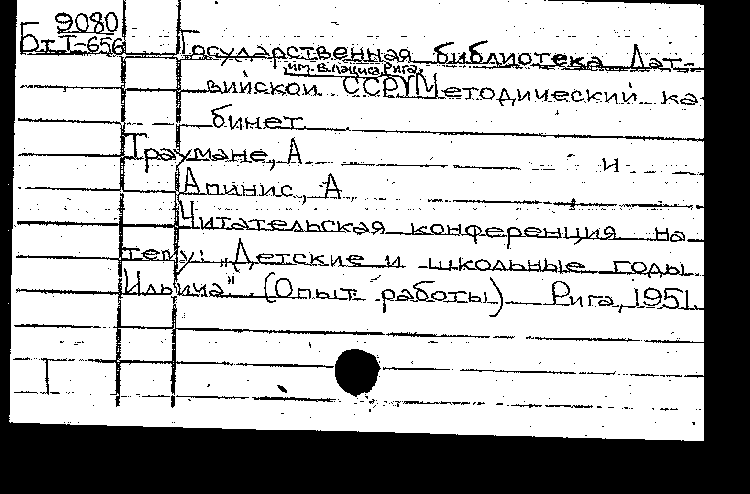 9080
БтI-656 Государственная библиотека Лат-
им. В. Лациса, Рига,
вийской ССР. Методический ка
бинет
Траумане, А и
Апинис, А
Читательская конференция на
тему: „Детские и школьные годы
Ильича" (Опыт работы) Рига, 1951.